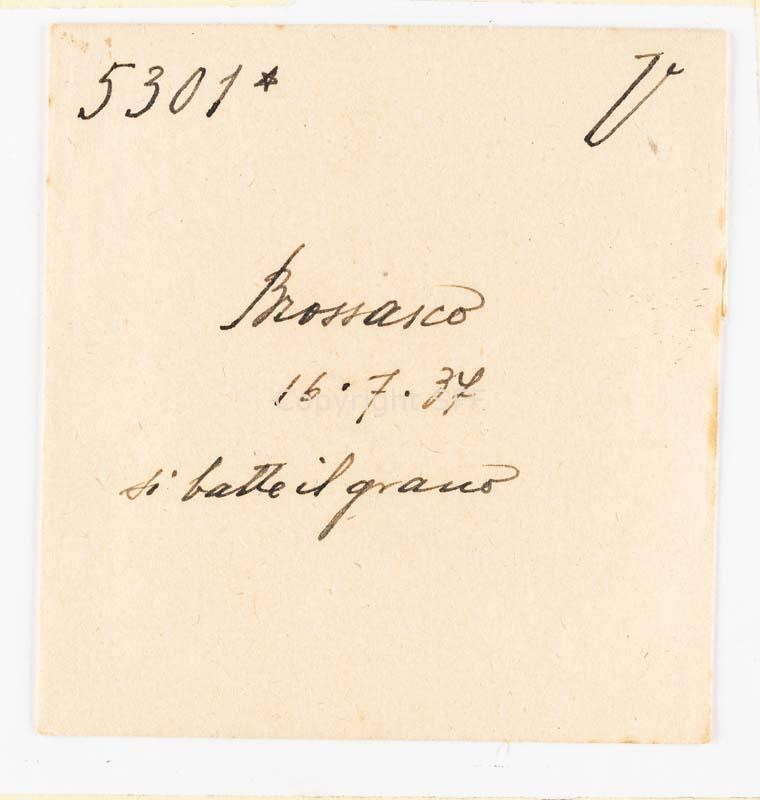 5301* V
Brossasco
16.7.37
Copyright SFF
si batte il grano